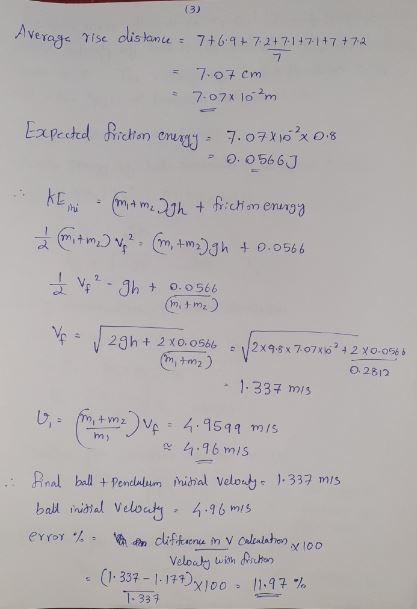 (3)
Average rise distance = 7+6.9+7.2+7.1+7.1+7+7.2
7
= 7.07 cm
= 7.07 x 10⁻² m
Expected friction energy = 7.07 x 10⁻² x 0.8
= 0.0566 J
∴ KE ini = (m₁+m₂)gh + friction energy
1/2 (m₁+m₂) V_f² = (m₁+m₂)gh + 0.0566
1/2 V_f² - gh + 0.0566
(m₁+m₂)
V_f = √(2gh + 2 x 0.0566 / (m₁+m₂)) = √(2x9.8x7.07x10⁻² + 2 x 0.0566 / 0.2812)
= 1.337 m/s
U₁ = (m₁+m₂ / m₁) V_f = 4.9599 m/s
≈ 4.96 m/s
∴ final ball + Pendulum initial Velocity = 1.337 m/s
ball initial Velocity = 4.96 m/s
error % = difference in V calculation x 100
Velocity with friction
= (1.337 - 1.177) x 100 = 11.97 %
1.337